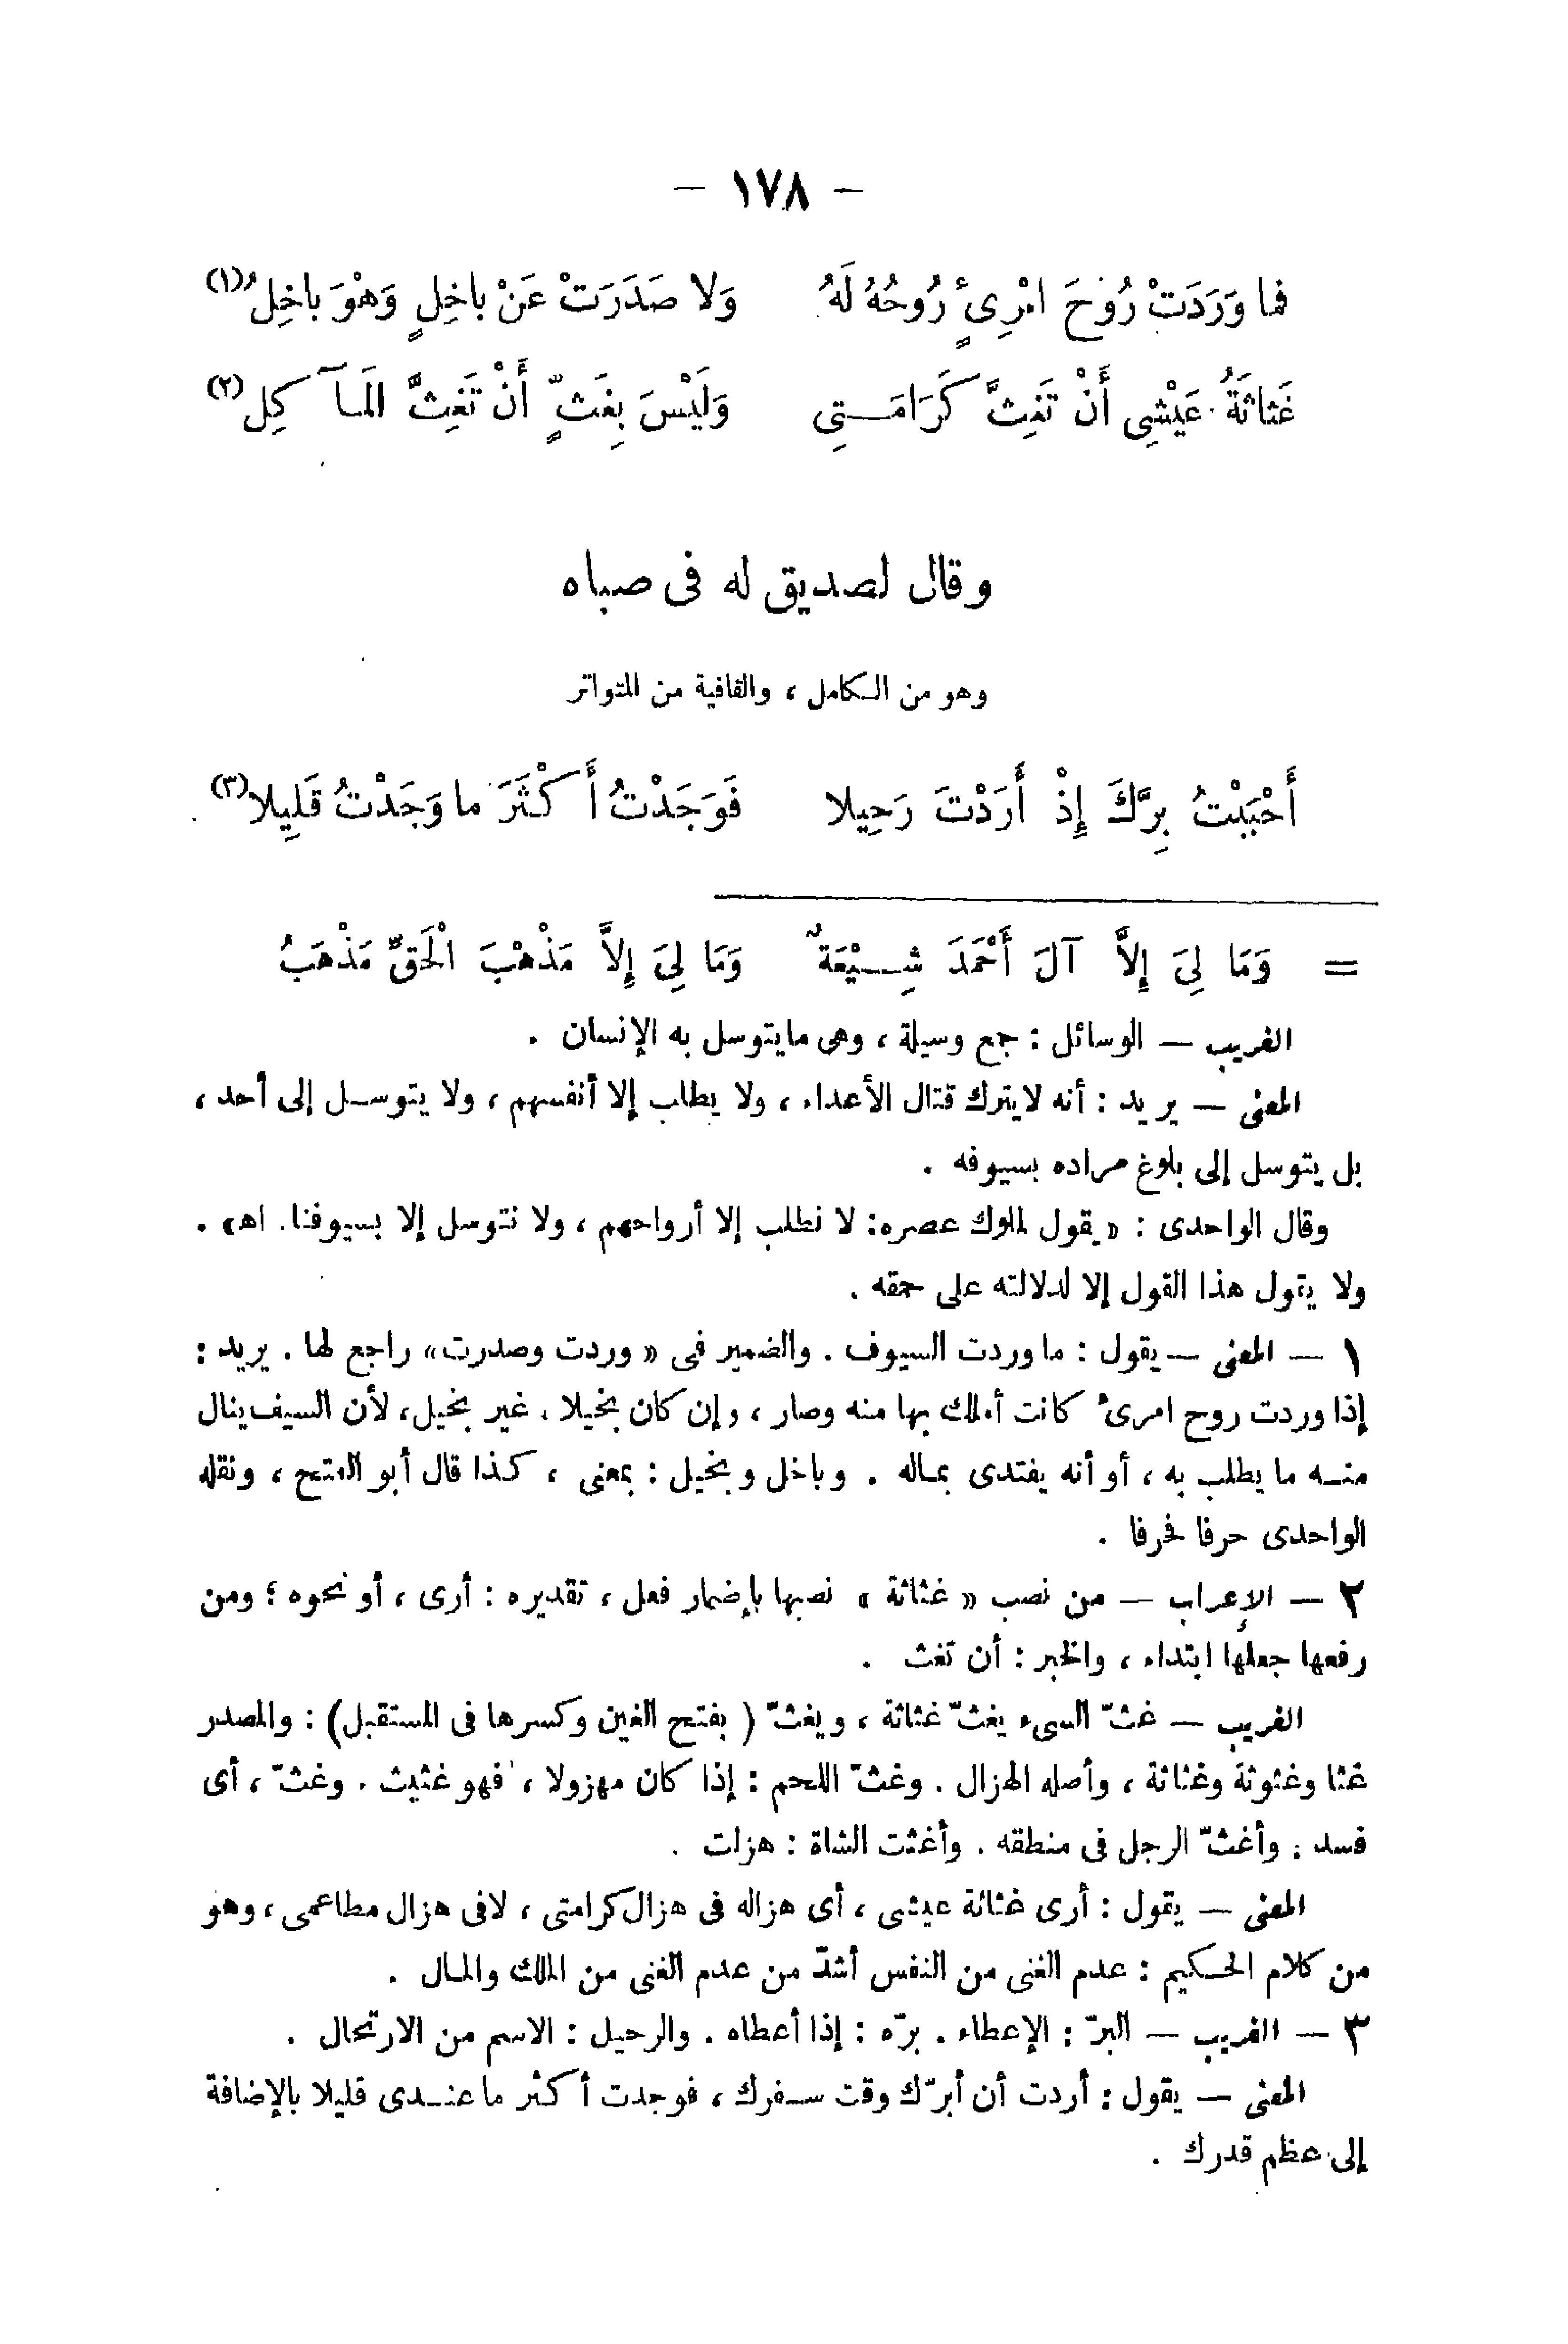 — ١٧٨ —
فما وَرَدَتْ رُوحَ امْرِئٍ رُوحُهُ لَهُ وَلا صَدَرَتْ عَنْ باخِلٍ وَهْوَ باخِلُ(١)
غَثاثَةُ عَيْشِى أَنْ تَغِثَّ كَرَامَــتِى وَلَيْسَ بِغَثٍّ أَنْ تَغِثَّ المَـآكِل(٢)
وقال لصديق له فى صباه
وهو من الـكامل ، والقافية من المتواتر
أَحْبَبْتُ بِرَّكَ إِذْ أَرَدْتَ رَحِيلا فَوَجَدْتُ أَكْثَرَ ما وَجَدْتُ قَلِيلا(٣)
= وَمَا لِىَ إِلاَّ آلَ أَحْمَدَ شِــيْعَةٌ وَمَا لِىَ إِلاَّ مَذْهَبَ الْحَقِّ مَذْهَبُ
الغريب — الوسائل : جمع وسيلة ، وهى مايتوسل به الإنسان .
المعنى — يريد : أنه لايترك قتال الأعداء ، ولا يطلب إلا أنفسهم ، ولا يتوســل إلى أحد ،
بل يتوسل إلى بلوغ مراده بسيوفه .
وقال الواحدى : « يقول لملوك عصره: لا نطلب إلا أرواحهم ، ولا نتوسل إلا بسيوفنا. اه» .
ولا يقول هذا القول إلا لدلالته على حمقه .
١ — المعنى — يقول : ما وردت السيوف . والضمير فى « وردت وصدرت» راجع لها . يريد :
إذا وردت روح امرئ كانت أملك بها منه وصار ، وإن كان بخيلا ، غير بخيل، لأن السيف ينال
منــه ما يطلب به ، أو أنه يفتدى بمـاله . وباخل وبخيل : بمعنى ، كذا قال أبو الفتح ، ونقله
الواحدى حرفا فحرفا .
٢ — الإعراب — من نصب « غثاثة » نصبها بإضمار فعل ، تقديره : أرى ، أو نحوه ؛ ومن
رفعها جعلها ابتداء ، والخبر : أن تغث .
الغريب — غثّ الشىء يغثّ غثاثة ، ويغثّ ( بفتح الغين وكسرها فى المستقبل) : والمصدر
غثا وغثوثة وغثاثة ، وأصله الهزال . وغثّ اللحم : إذا كان مهزولا ، فهو غثيث . وغثّ ، أى
فسد ; وأغثّ الرجل فى منطقه . وأغثت الشاة : هزلت .
المعنى — يقول : أرى غثاثة عيشى ، أى هزاله فى هزال كرامتى ، لافى هزال مطاعمى ، وهو
من كلام الحـكيم : عدم الغنى من النفس أشدّ من عدم الغنى من الملك والمـال .
٣ — الغريب — البرّ : الإعطاء . برّه : إذا أعطاه . والرحيل : الاسم من الارتحال .
المعنى — يقول : أردت أن أبرّك وقت ســفرك ، فوجدت أكثر ما عنــدى قليلا بالإضافة
إلى عظم قدرك .